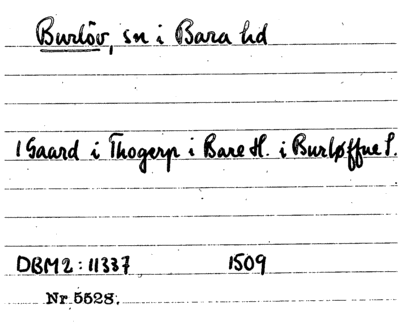 Burlöv, sn i Bara hd
1 Gaard i Thogerp i Bare H. i Burløffue S.
DBM2: 11337 1509
Nr 5528.